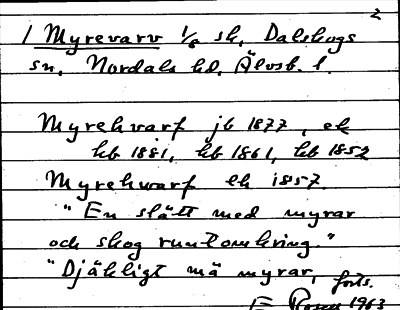 2
1 Myrevarv 1/6 sk, Dalskogs
sn, Nordals hd, Älvsb. l.
Myrehvarf jb 1877, ek
hb 1881, hb 1861, hb 1852
Myrehwarf ek 1857.
"En slätt med myrar
och skog runtomkring."
"Djäkligt mä myrar, forts.
E Rosén 1963